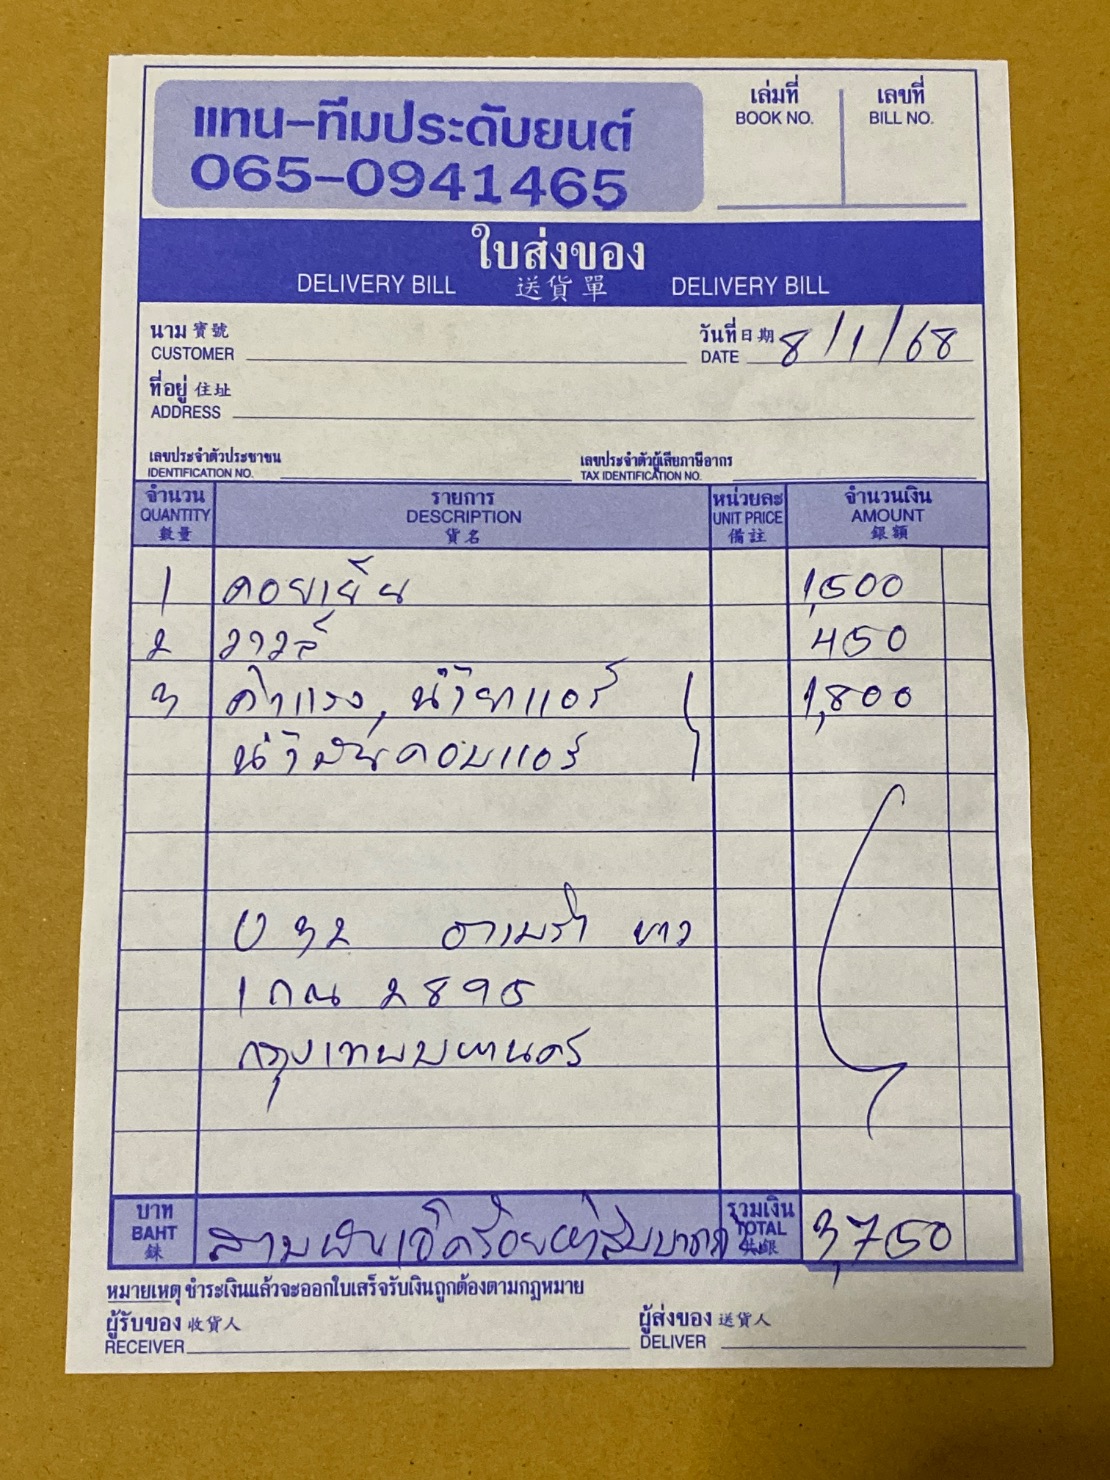 แทน-ทีมประดับยนต์
065-0941465
เล่มที่
BOOK NO.
เลขที่
BILL NO.
ใบส่งของ
DELIVERY BILL 送貨單 DELIVERY BILL
นาม 寳號
CUSTOMER
วันที่ 日期 8/1/68
DATE
ที่อยู่ 住址
ADDRESS
เลขประจำตัวประชาชน
IDENTIFICATION NO.
เลขประจำตัวผู้เสียภาษีอากร
TAX IDENTIFICATION NO.
จำนวน รายการ หน่วยละ จำนวนเงิน
QUANTITY DESCRIPTION UNIT PRICE AMOUNT
數量 貨名 備註 銀額
1 คอยเย็น 1,500
2 วาวล์ 450
3 ค่าแรง, น้ำยาแอร์ 1,800
น้ำมันคอมแอร์
ขาว
1กณ 2895
กรุงเทพมหานคร
บาท
BAHT
銖
สามพันเจ็ดร้อยห้าสิบบาท
รวมเงิน
TOTAL
共銀
3,750
หมายเหตุ ชำระเงินแล้วจะออกใบเสร็จรับเงินถูกต้องตามกฎหมาย
ผู้รับของ 收貨人
RECEIVER
ผู้ส่งของ 送貨人
DELIVER